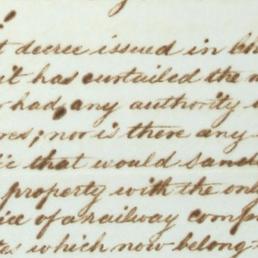 t decree issued in
it has curtailed the
had any authority
res; nor is there any
ic that would sanc
property with the on
ice of a railway comp
tes which now belong